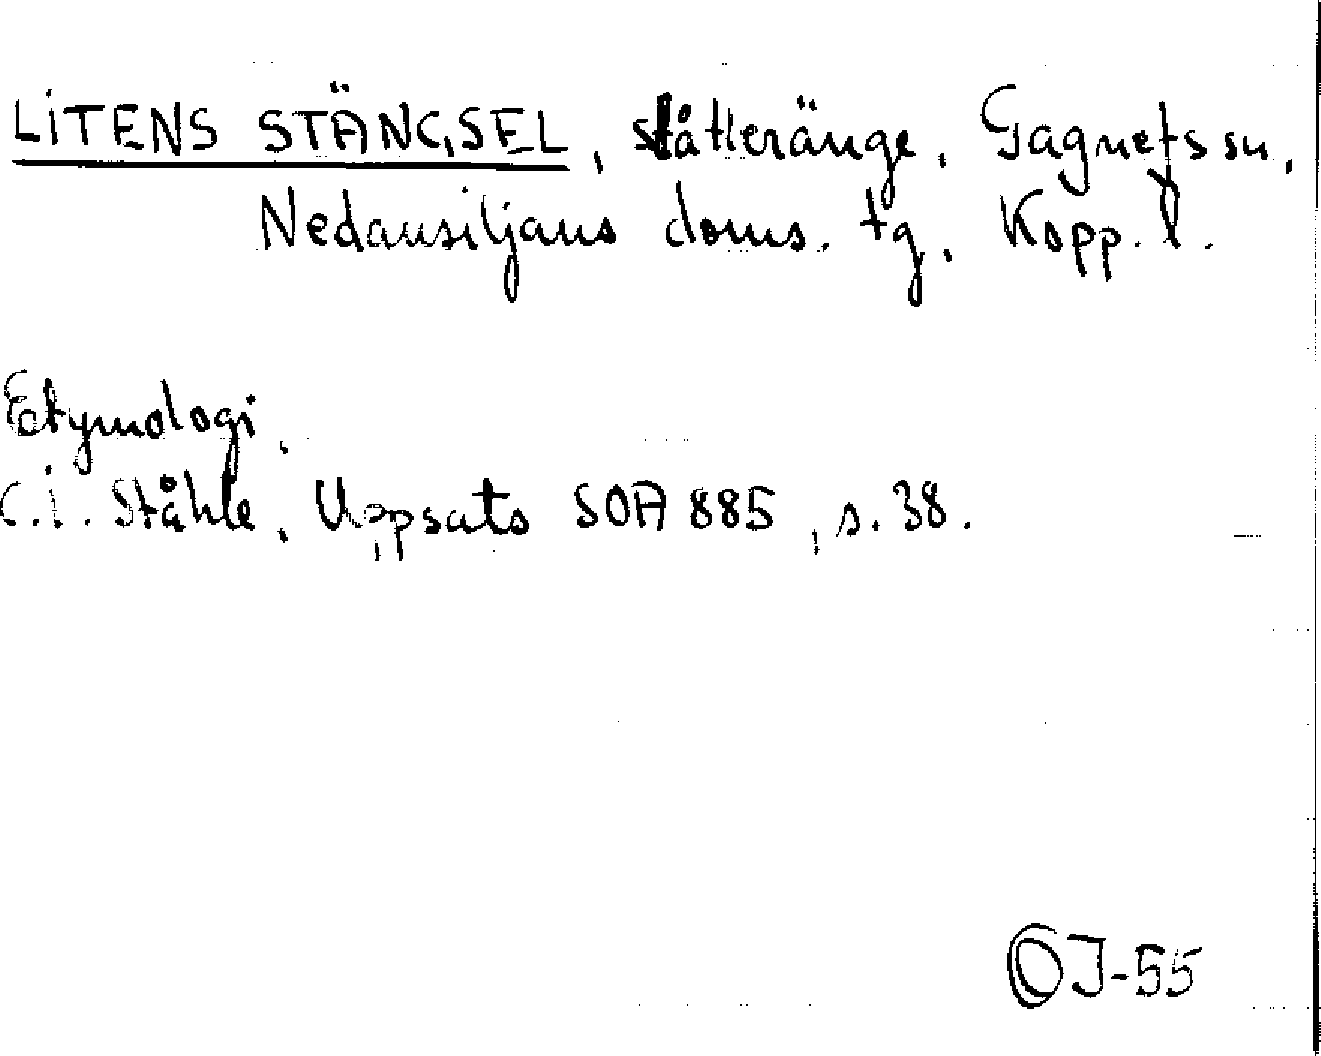 LITENS STÄNGSEL, slåtteränge, Gagnefs sn,
Nedansiljans doms. tg, Kopp. l.
Etymologi.
C.I. Ståhle, Uppsats SOA 885, s. 38.
OJ-55